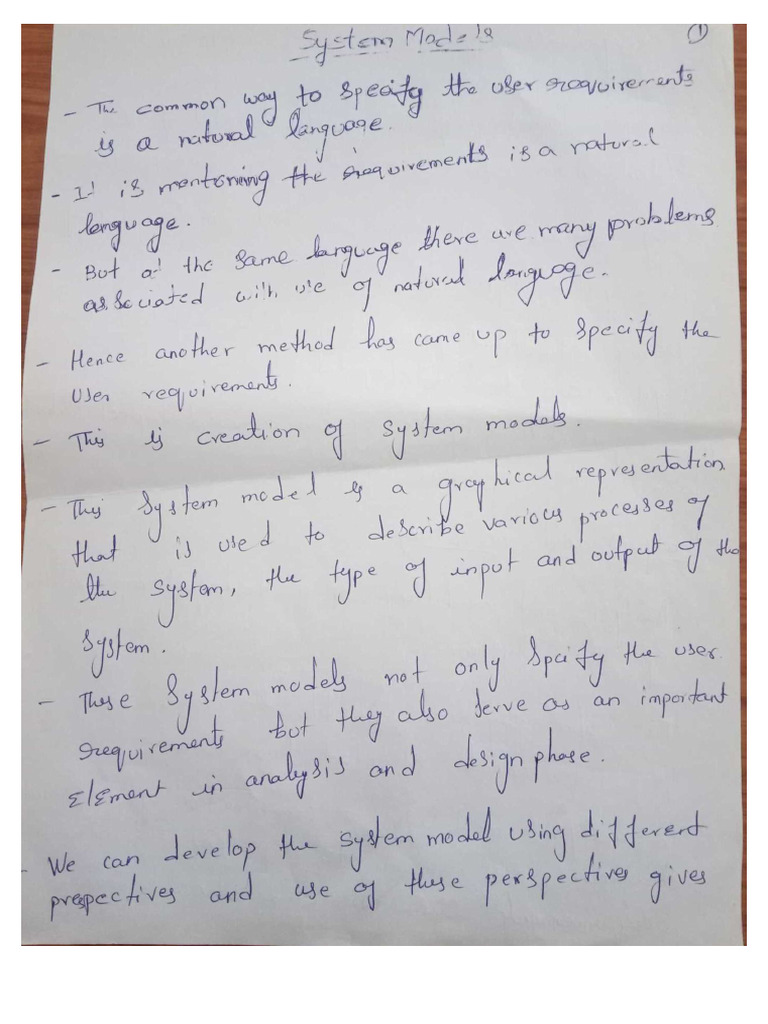 System Models
1
- The common way to specify the user requirements
is a natural language.
- It is mentoning the requirements is a natural
language.
- But at the same language there are many problems
associated with use of natural language.
- Hence another method has came up to specify the
User requirements.
- This is creation of system models.
- This System model is a graphical representation
that is used to describe various processes of
the system, the type of input and output of the
System.
- These System models not only Spcify the user
requirements but they also serve as an important
Element in analysis and design phase.
- We can develop the system model using different
prespectives and use of these perspectives gives